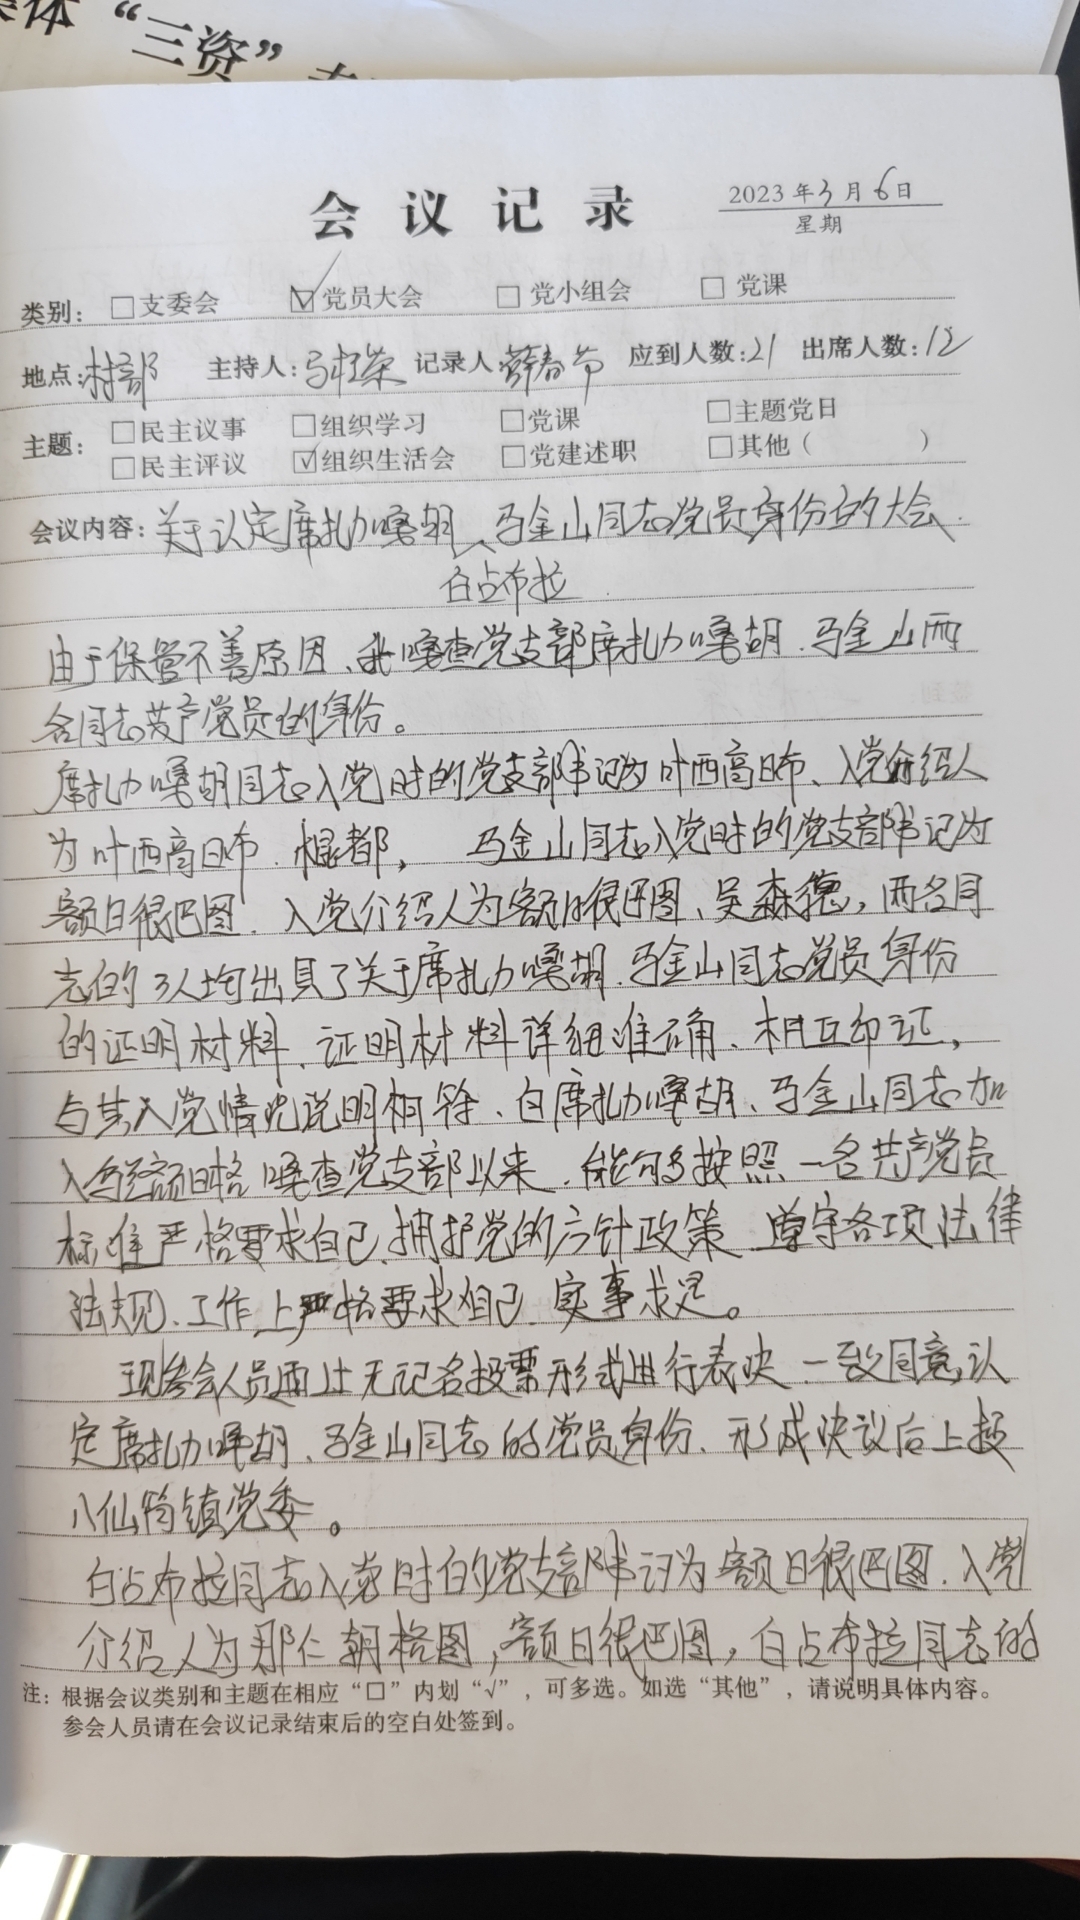 集体“三资”
会议记录
2023年3月6日
星期
类别: □支委会 ☑党员大会 □党小组会 □党课
地点:村部 主持人:马桂荣 记录人:薛春节 应到人数:21 出席人数:12
主题: □民主议事 □组织学习 □党课 □主题党日
□民主评议 ☑组织生活会 □党建述职 □其他( )
会议内容:关于认定席扎力嘎胡、马金山同志党员身份的大会.
白占布拉
由于保管不善原因、我嘎查党支部席扎力嘎胡、马金山两
名同志共产党员的身份。
席扎力嘎胡同志入党时的党支部书记为叶西高日布、入党介绍人
为叶西高日布、棍都, 马金山同志入党时的党支部书记为
额日很巴图、入党介绍人为额日很巴图、吴森德,两名同
志的3人均出具了关于席扎力嘎胡、马金山同志党员身份
的证明材料、证明材料详细准确、相互印证,
与其入党情况说明相符、自席扎力嘎胡、马金山同志加
入 额日格嘎查党支部以来、能够按照一名共产党员
标准严格要求自己、拥护党的方针政策、遵守各项法律
法规、工作上严格要求自己、实事求是。
现参会人员通过无记名投票形式进行表决、一致同意认
定席扎力嘎胡、马金山同志的党员身份、形成决议后上报
八仙筒镇党委。
白占布拉同志入党时的党支部书记为额日很巴图、入党
介绍人为那仁朝格图,额日很巴图,白占布拉同志的
注:根据会议类别和主题在相应“□”内划“√”,可多选。如选“其他”,请说明具体内容。
参会人员请在会议记录结束后的空白处签到。